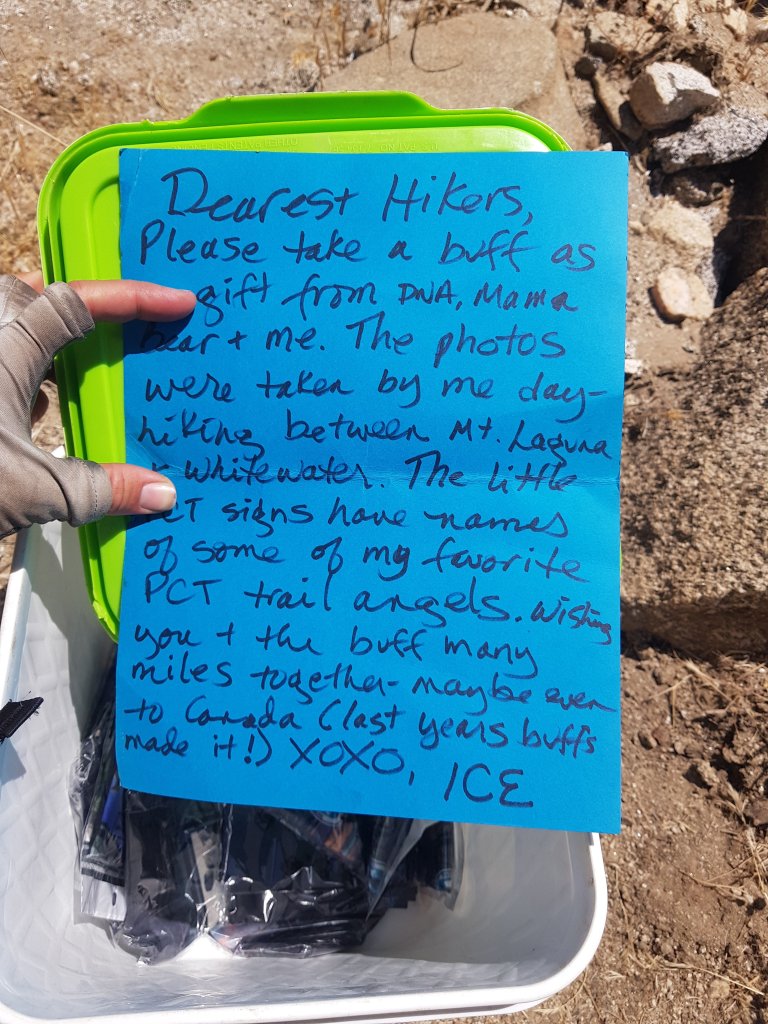 Dearest Hikers,
Please take a buff as
gift from DNA, Mama
bear + me. The photos
were taken by me day-
hiking between Mt. Laguna
+ Whitewater. The little
PCT signs have names
of some of my favorite
PCT trail angels. Wishing
you + the buff many
miles together- maybe even
to Canada (last years buffs
made it!) XOXO, ICE